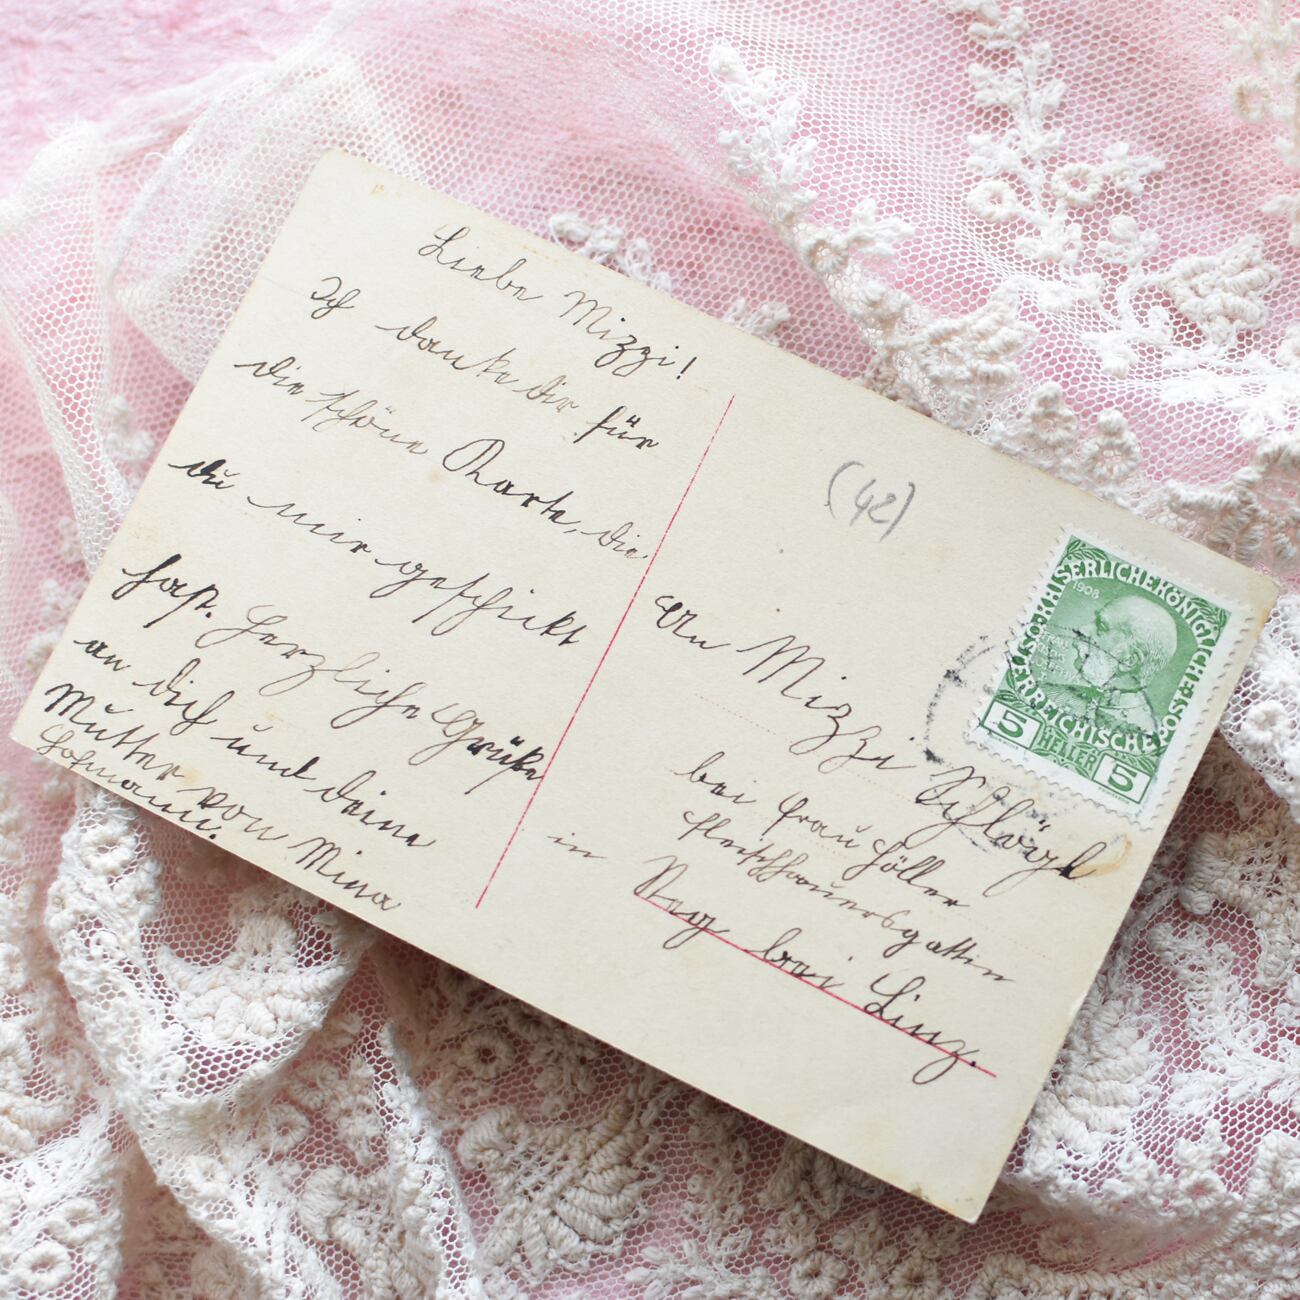 Liebe Mizzi!
Ich danke dir für
die schöne Karte, die
du mir geschickt
hast. Herzliche Grüße
an dich und deine
Mutter von Mina
Hofmann.
(42)
An Mizzi Schlögl
bei Frau Höller
Fleischhauersgattin
in Steg bei Linz.
KAISERLICHEKÖNIGLICHE
ÖSTERREICHISCHE
1908
5 HELLER 5